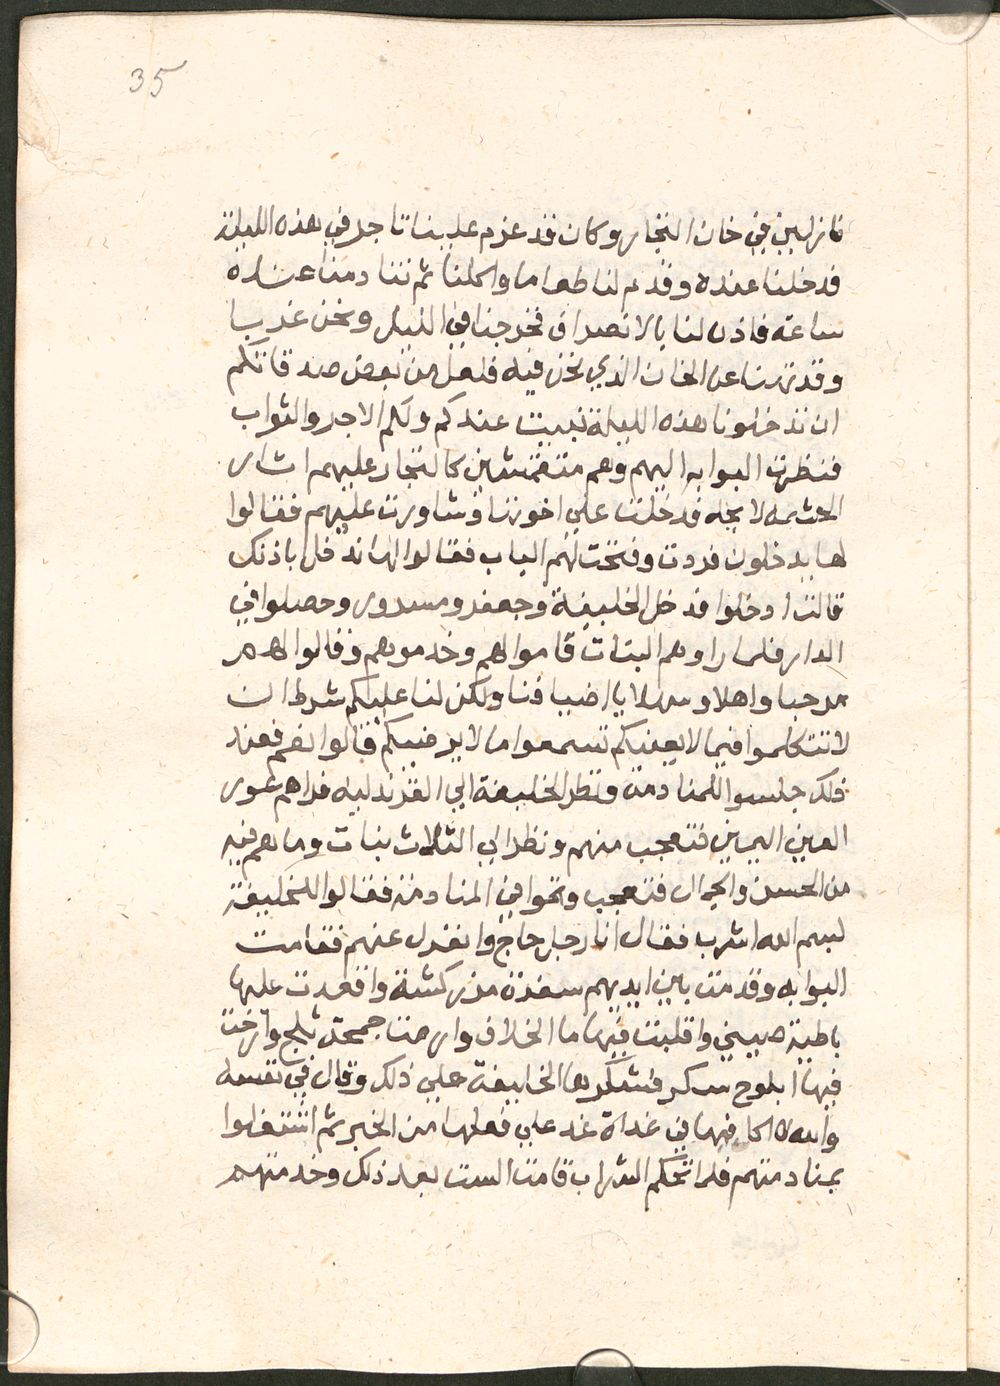 35
نازلين في خان التجار وكان قد عزم علينا تاجر في هذه الليلة
فدخلنا عنده وقدم لنا طعاما واكلنا ثم تنادمنا عنده
ساعة فاذن لنا بالانصراف فخرجنا في الليل ونحن غربا
وقد تهنا عن الخان الذي نحن فيه فلعل من بعض صدقاتكم
ان تدخلونا هذه الليلة نبيت عندكم ولكم الاجر والثواب
فنظرت البوابه اليهم وهم متقمشين كالتجار عليهم اثار
الحشمه لا بجله فدخلت علي اخوتنا وشاورت عليهم فقالوا
لها يدخلون فردت وفتحت لهم الباب فقالوا لها ندخل باذنك
قالت ادخلوا فدخل الخليفة وجعفر ومسرور وحصلوا في
الدار فلما راوهم البنات قاموا لهم وخدموهم وقالوا لهم
مرحبا واهلا وسهلا يا اضيافنا ولكن لنا عليكم شرط ان
لا تتكلموا فيما لا يعنيكم تسمعوا ما لا يرضيكم قالوا نعم فعند
ذلك جلسوا للمنادمة ونظر الخليفة الي القرندليه فراهم عور
العين اليمين فتعجب منهم ونظر الي الثلاث بنات وما هم فيه
من الحسن والجمال فتعجب ونموا في المنادمة فقالوا للخليفة
بسم الله اشرب فقال انا رجل حاج وانعزل عنهم فقامت
البوابه وقدمت بين ايديهم سفرة مزركشة واقعدت عليها
باطية صيني واقلبت فيها ما الخلاف وارمت جمجة ثلج وارخت
فيها ابلوج سكر فشكرها الخليفة علي ذلك وقال في نفسه
والله لاكافيها في غداة غد علي فعلها من الخير ثم اشتغلوا
بمنادمتهم فلما تحكم الشراب قامت الست بعد ذلك وخدمتهم